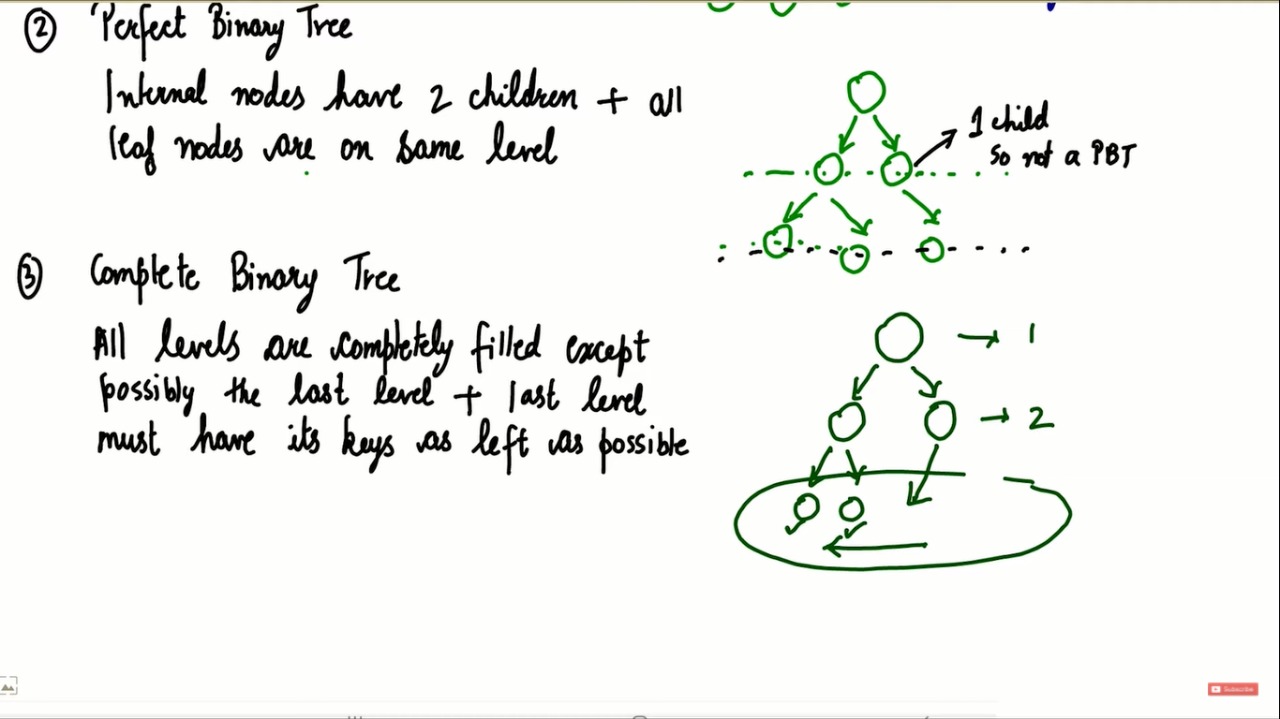 ② Perfect Binary Tree
Internal nodes have 2 children + all
leaf nodes are on same level
1 child
so not a PBT
③ Complete Binary Tree
All levels are completely filled except
possibly the last level + last level
must have its keys as left as possible
1
2
Subscribe